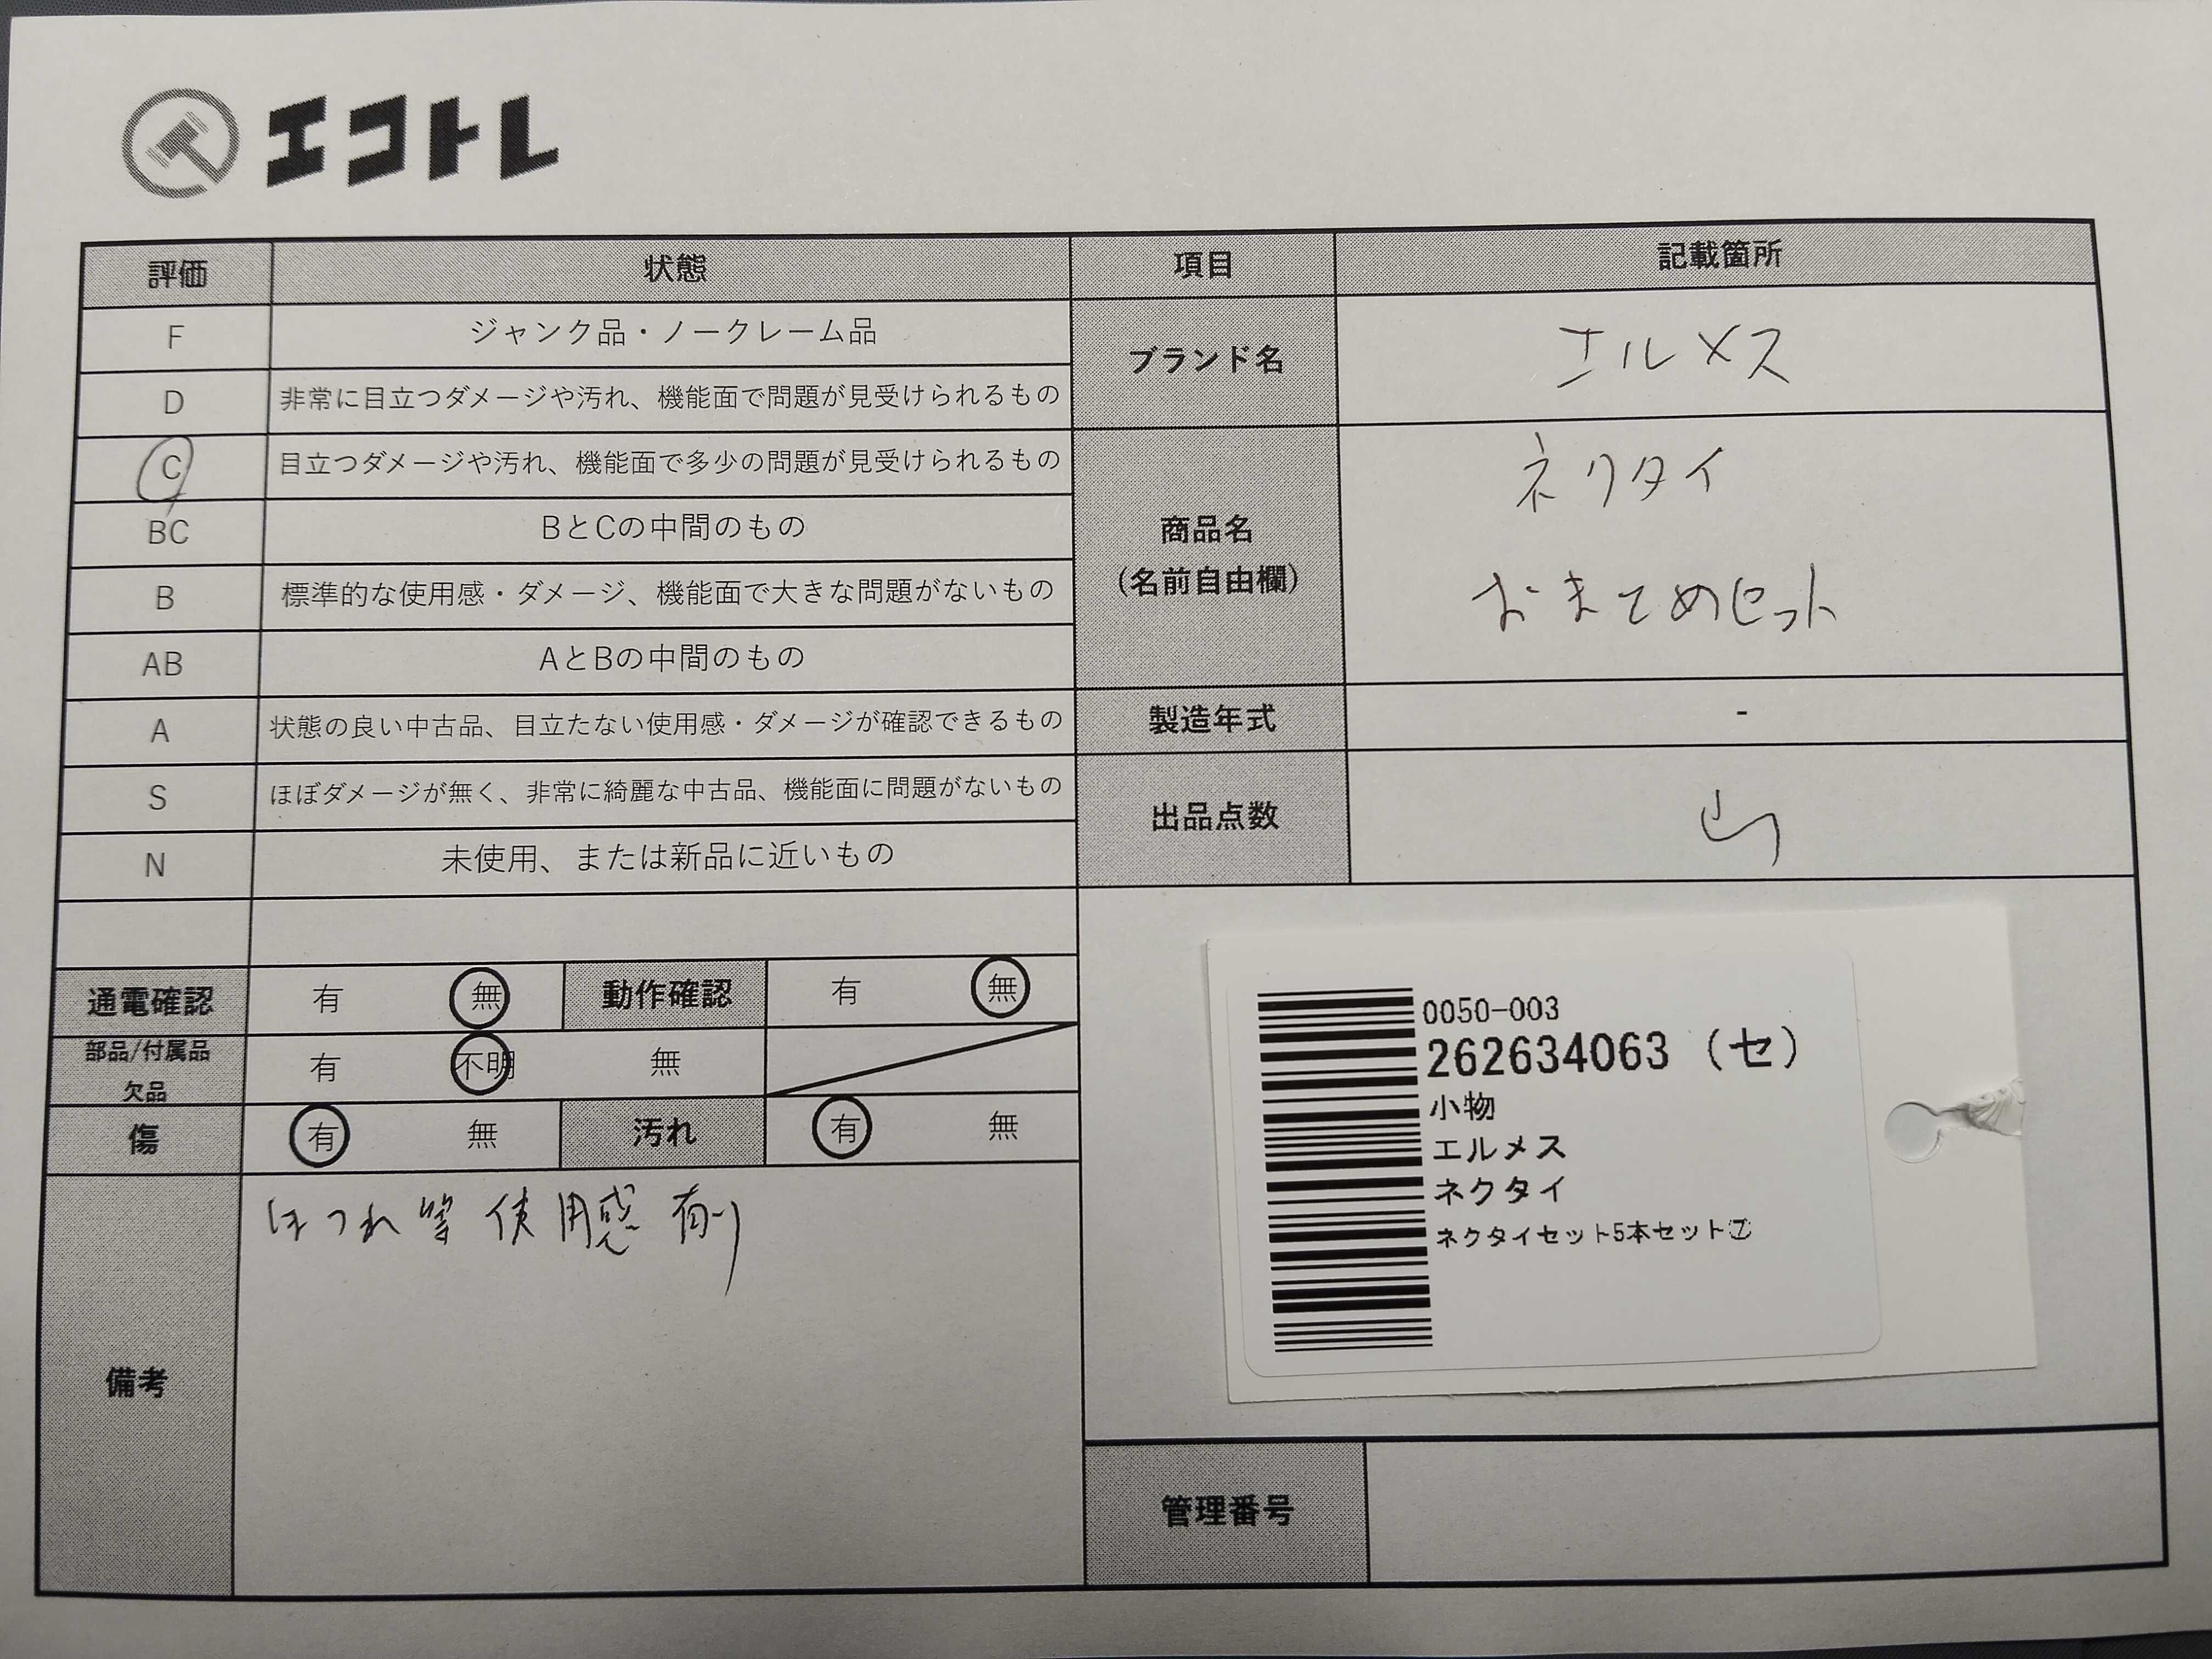 エコトレ
評価 状態 項目 記載箇所
F ジャンク品・ノークレーム品
D 非常に目立つダメージや汚れ、機能面で問題が見受けられるもの
C 目立つダメージや汚れ、機能面で多少の問題が見受けられるもの
BC BとCの中間のもの
B 標準的な使用感・ダメージ、機能面で大きな問題がないもの
AB AとBの中間のもの
A 状態の良い中古品、目立たない使用感・ダメージが確認できるもの
S ほぼダメージが無く、非常に綺麗な中古品、機能面に問題がないもの
N 未使用、または新品に近いもの
ブランド名 エルメス
商品名
(名前自由欄)
ネクタイ
おまとめセット
製造年式 -
出品点数
通電確認 有 無 動作確認 有 無
部品/付属品
欠品
有 不明 無
傷 有 無 汚れ 有 無
備考
ほつれ等 使用感 有り
0050-003
262634063 (セ)
小物
エルメス
ネクタイ
ネクタイセット5本セット⑦
管理番号